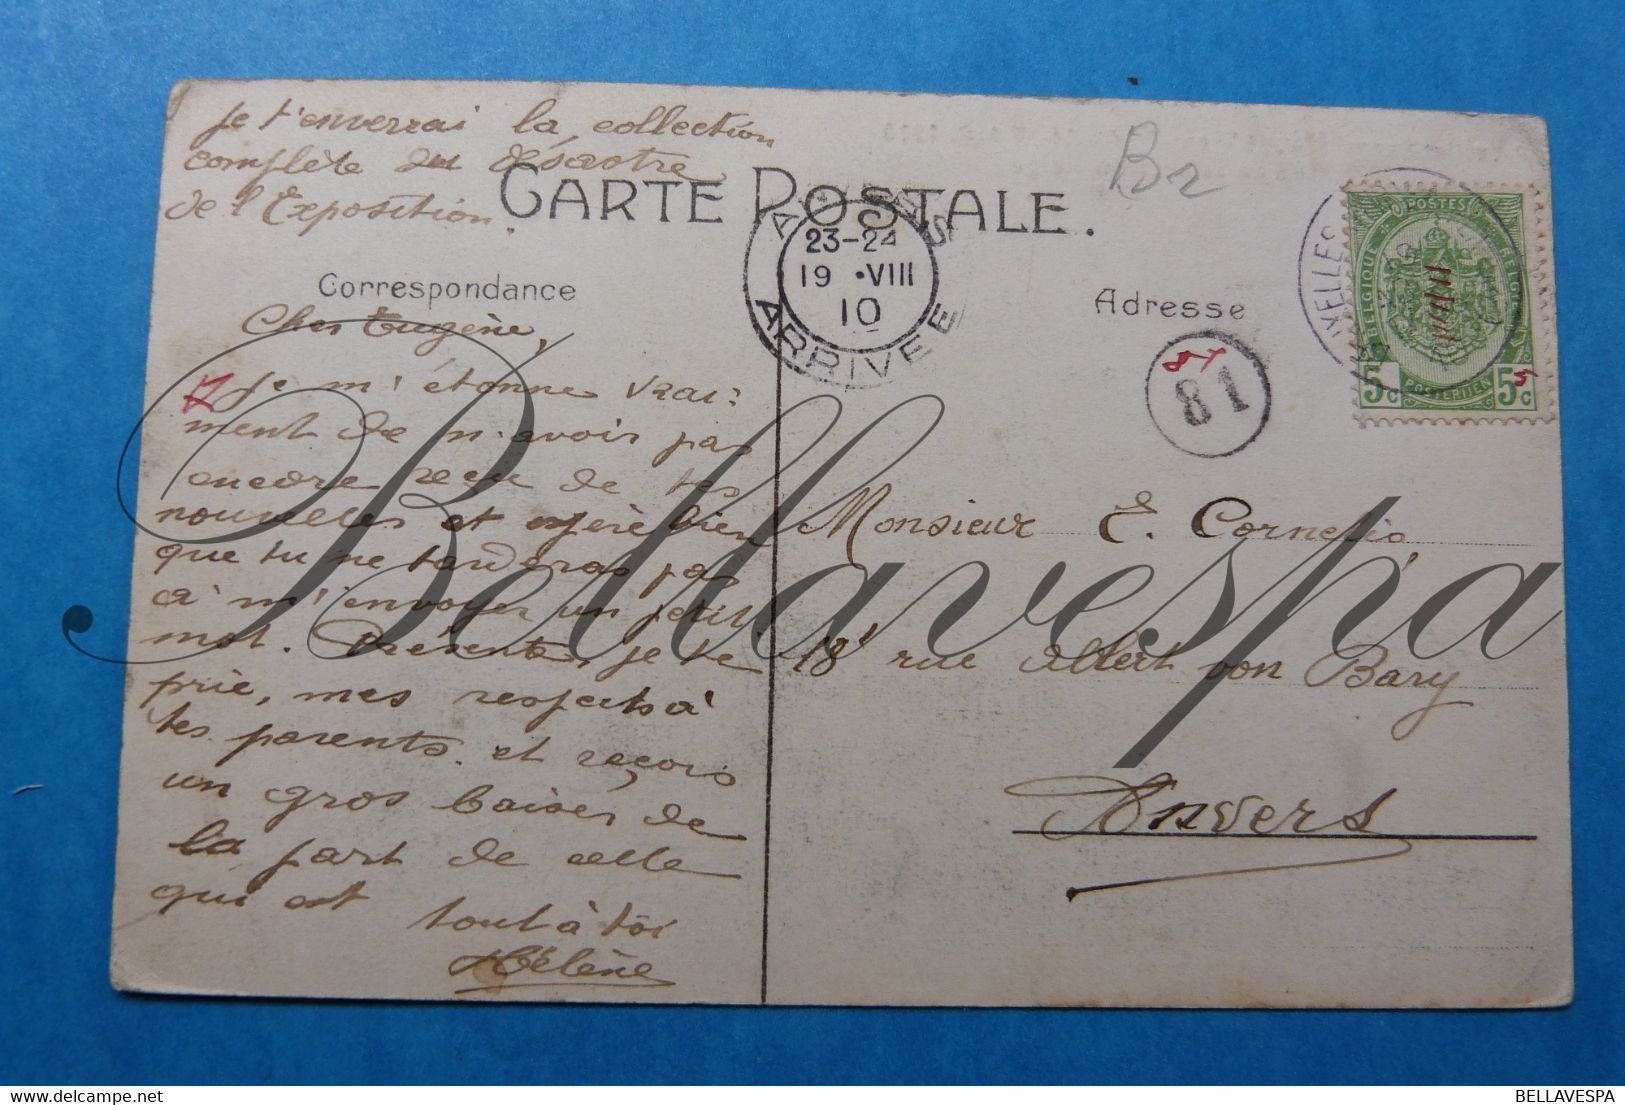 Je t'enverrai la collection
complète du désastre
de l'Exposition.
CARTE POSTALE.
Br
ANVERS
23-24
19 •VIII
10
ARRIVEE
Correspondance
Adresse
81
POSTES
BELGIQUE
5c POSTERIJEN 5c
Cher Eugène,
Je m'étonne vrai-
ment de n'avois pas
encore reçu de tes
nouvelles et espère bien
que tu ne tarderas pas
à m'envoyer un petit
mot. Présente, je te
prie, mes respects à
tes parents et reçois
un gros baiser de
la part de celle
qui est tout à toi
Hélène
Monsieur E. Cornelis
18 rue Albert von Bary
Anvers
Bellavespa
BELLAVESPA